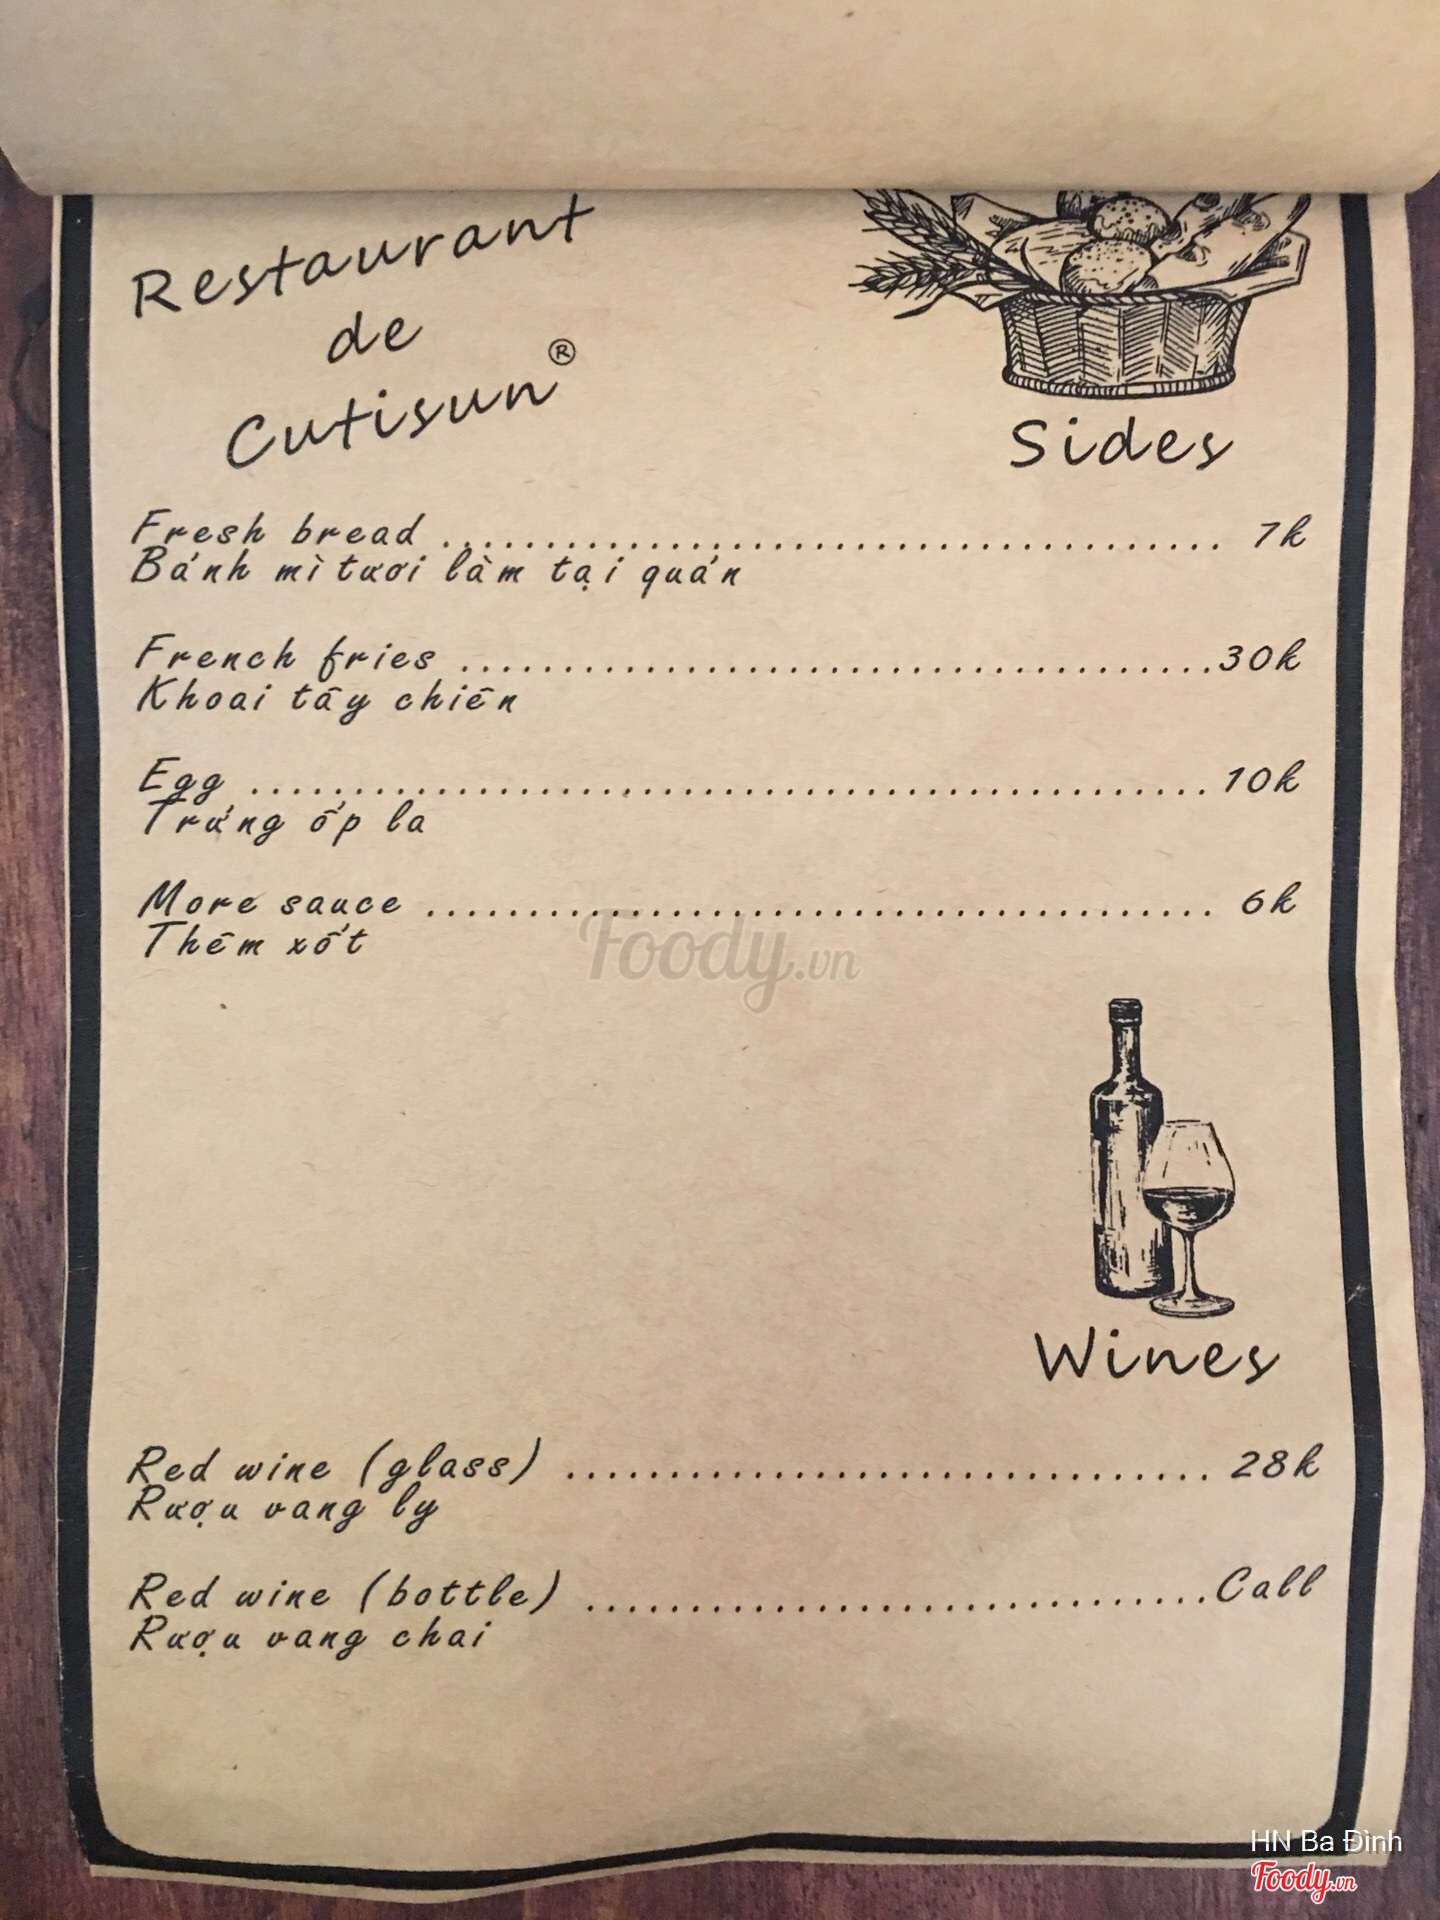 Restaurant
de
Cutisun®
Sides
Fresh bread ........................................ 7k
Bánh mì tươi làm tại quán
French fries ........................................30k
Khoai tây chiên
Egg ........................................ 10k
Trứng ốp la
More sauce ........................................ 6k
Thêm xốt
Foody.vn
Wines
Red wine (glass) ........................................ 28k
Rượu vang ly
Red wine (bottle) ........................................Call
Rượu vang chai
HN Ba Đình
Foody.vn